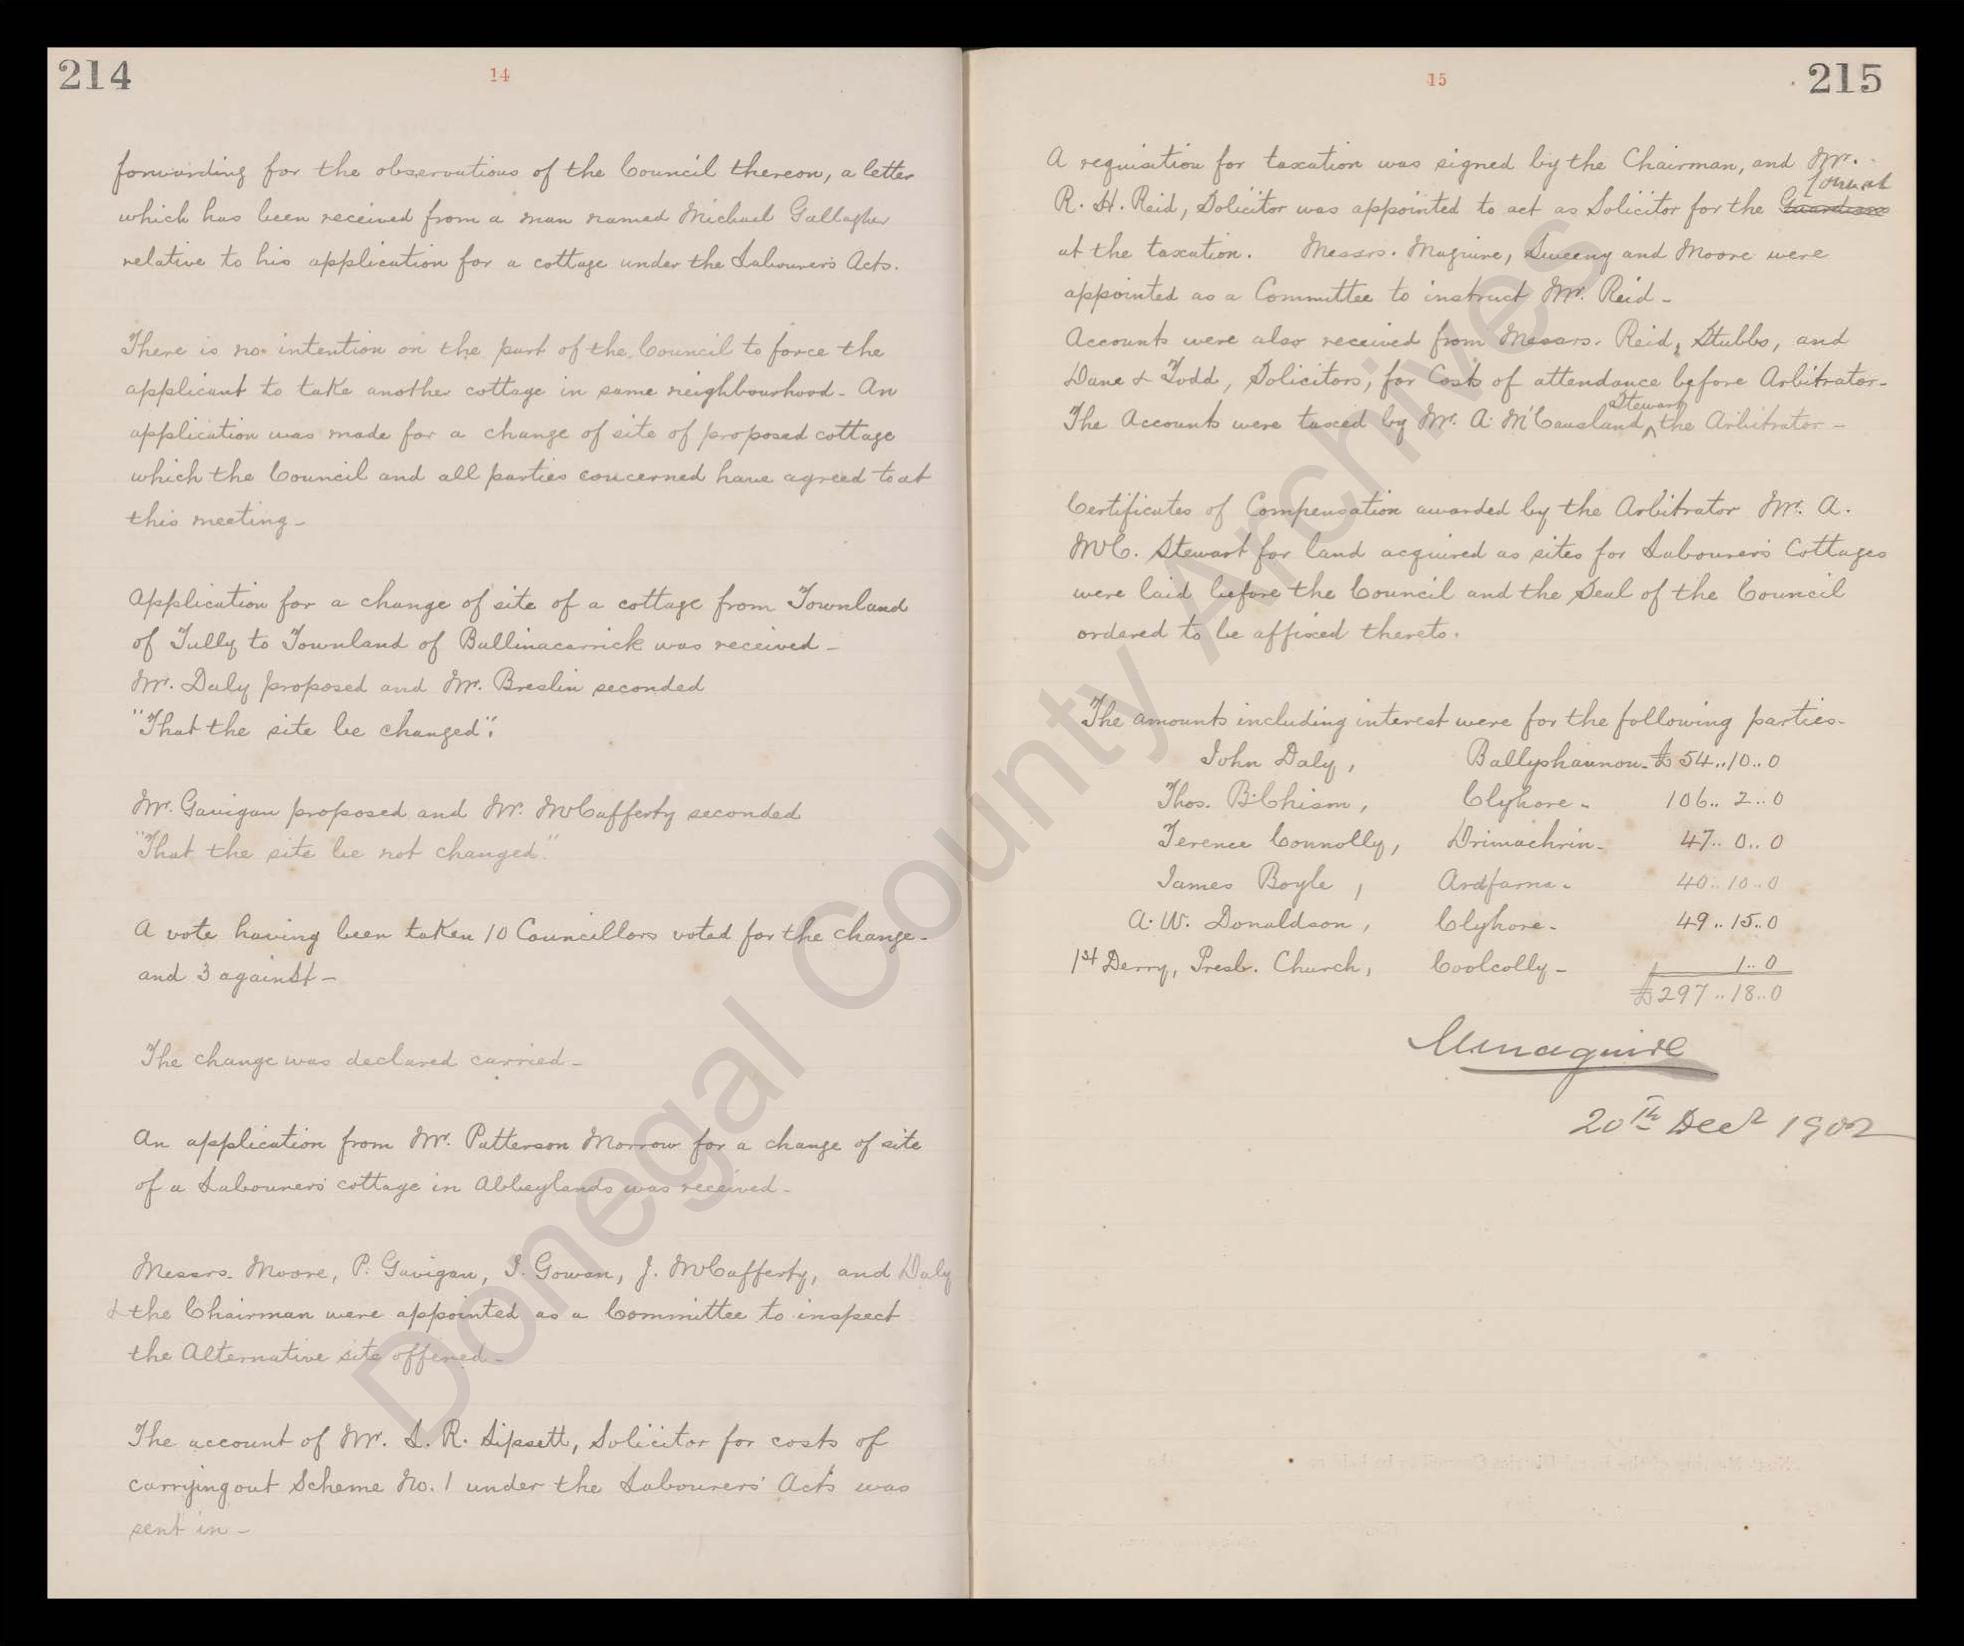 214
14
forwarding for the observations of the Council thereon, a letter
which has been received from a man named Michael Gallagher
relative to his application for a cottage under the Labourers Acts.
There is no intention on the part of the Council to force the
applicant to take another cottage in same neighbourhood - An
application was made for a change of site of proposed cottage
which the Council and all parties concerned have agreed to at
this meeting -
Application for a change of site of a cottage from Townland
of Tully to Townland of Ballinacarrick was received -
Mr. Daly proposed and Mr. Breslin seconded
"That the site be changed".
Mr. Gavigan proposed and Mr. McCafferty seconded
"That the site be not changed."
A vote having been taken 10 Councillors voted for the change -
and 3 against -
The change was declared carried -
An application from Mr. Patterson Morrow for a change of site
of a Labourers' cottage in Abbeylands was received -
Messrs. Moore, P. Gavigan, I. Gowan, J. McCafferty, and Daly
& the Chairman were appointed as a Committee to inspect
the Alternative site offered -
The account of Mr. L. R. Lipsett, Solicitor for costs of
carrying out Scheme No. 1 under the Labourers' Acts was
sent in -
15
215
A requisition for taxation was signed by the Chairman, and Mr.
Council
R. H. Reid, Solicitor was appointed to act as Solicitor for the Guardians
at the taxation. Messrs. Maguire, Sweeny and Moore were
appointed as a Committee to instruct Mr. Reid -
Accounts were also received from Messrs. Reid, Stubbs, and
Dane & Todd, Solicitors, for Costs of attendance before Arbitrator -
Stewart
The Accounts were taxed by Mr. A. McCausland ^ the Arbitrator -
Certificates of Compensation awarded by the Arbitrator Mr. A.
McC. Stewart for land acquired as sites for Labourers Cottages
were laid before the Council and the Seal of the Council
ordered to be affixed thereto.
The amounts including interest were for the following parties -
John Daly, Ballyshannon - £54..10..0
Thos. B. Chism, Clyhore - 106..2..0
Terence Connolly, Drimachrin - 47..0..0
James Boyle, Ardfarna - 40..10..0
A. W. Donaldson, Clyhore - 49..15..0
1st Derry, Presb. Church, Coolcolly - 1..0
£297..18..0
Maguire
20th Decr 1902
Donegal County Archives